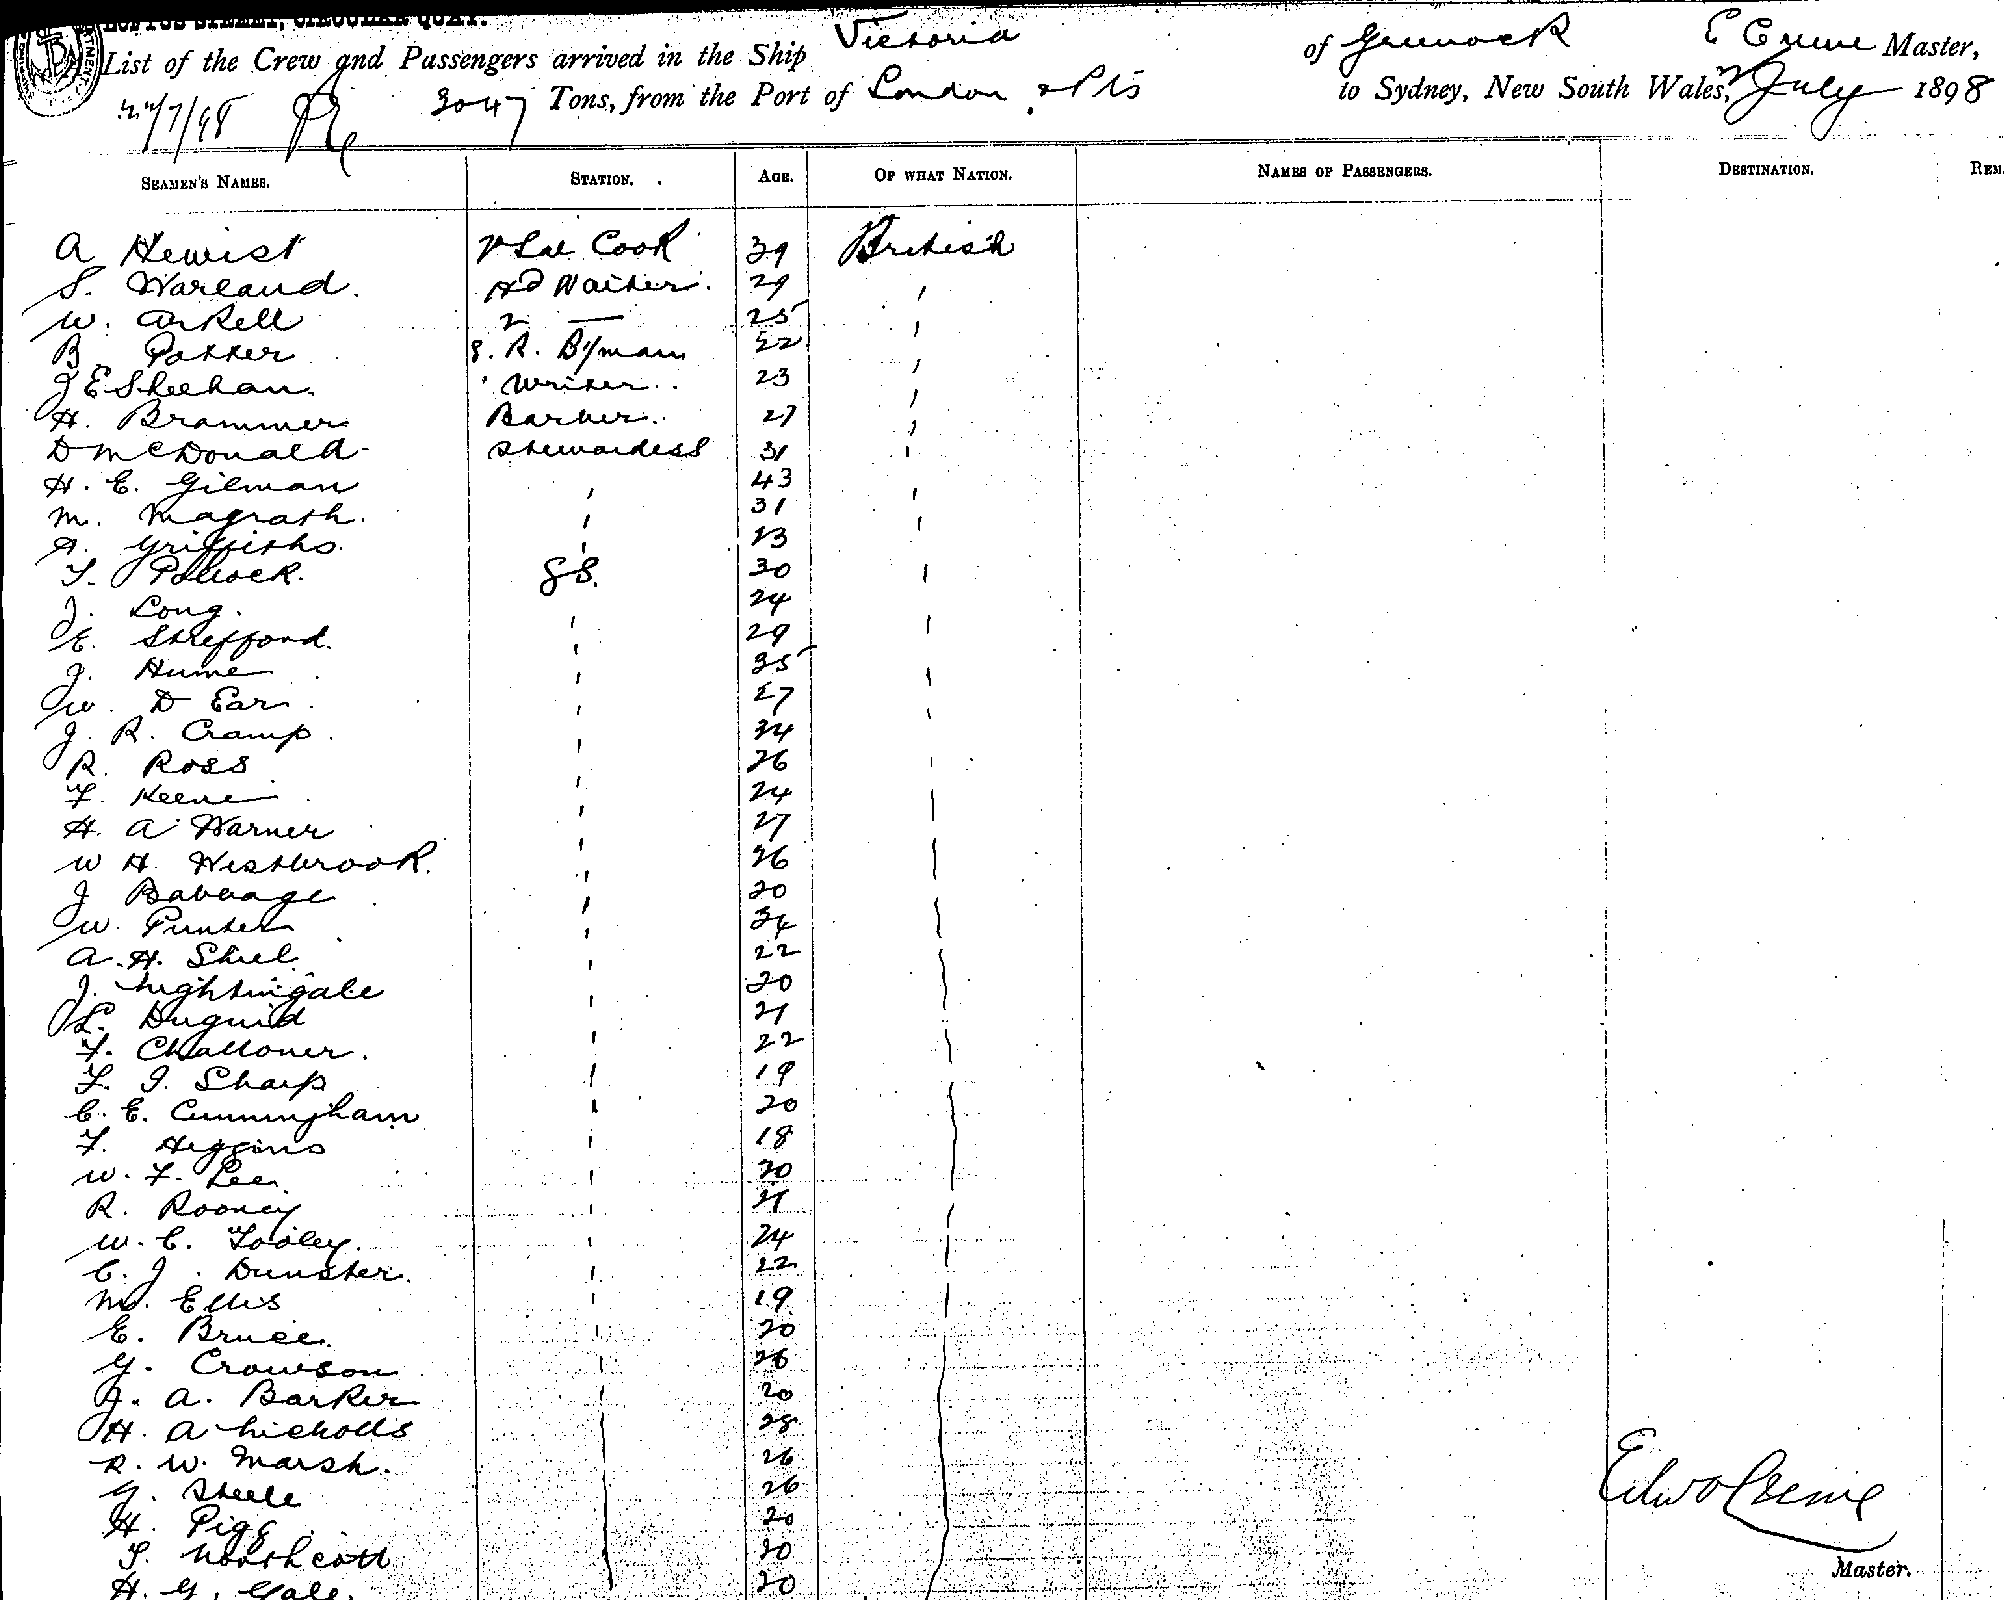 List of the Crew and Passengers arrived in the Ship Victoria of Greenock E Creme Master,
22/7/98 3047 Tons, from the Port of London & Pts to Sydney, New South Wales, July 1898
SEAMEN'S NAMES. STATION. AGE. OF WHAT NATION. NAMES OF PASSENGERS. DESTINATION. REM
A Hewist Cook 39 British
S. Warland. Hd Waiter. 29
W. Arkell 2 — 25
B Potter S. R. B'yman 22
J E Sheehan. Writer.. 23
H. Brammer Barber. 27
D McDonald Stewardess 31
H. E. Gilman 43
M. Magrath. 31
A. Griffiths. 23
F. Pollock. G S. 30
J. Long. 24
E. Shefford. 29
J. Hume 35
W. D Ear. 27
J. R. Cramp. 34
R. Ross 26
F. Keene 24
H. A Warner 27
W H. Westbrook. 26
J Babbage 20
W. Punter 34
A. H. Shiel 22
J. Nightingale 20
L. Duguid 21
F. Challoner. 22
F. J. Sharp 19
C. E. Cunningham 20
F. Higgins 18
W. F. Lee. 20
R. Rooney 21
W. C. Tooley. 24
C. J. Dunster. 22
M. Ellis 19
E. Bruce. 20
G. Crowson 26
J. A. Barker 20
H. A Nicholls 28
R. W. Marsh. 26
G. Steele 26
H. Pigg 20
F. Northcott 20
H. G. Gale. 20
Edwd Creme
Master.